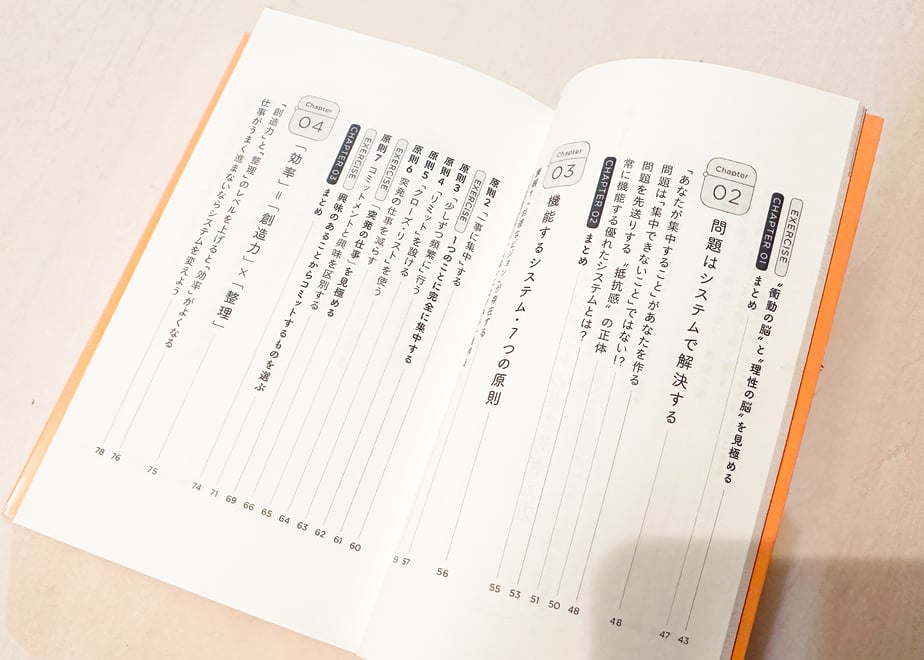 EXERCISE “衝動の脳”と“理性の脳”を見極める 43
CHAPTER 01 まとめ 47
Chapter 02 問題はシステムで解決する 48
「あなたが集中すること」があなたを作る 48
問題は「集中できないこと」ではない!? 50
問題を先送りする“抵抗感”の正体 51
常に機能する優れたシステムとは? 53
CHAPTER 02 まとめ 55
Chapter 03 機能するシステム・7つの原則 56
57
原則2 「一事に集中」する 60
EXERCISE 1つのことに完全に集中する 61
原則3 「少しずつ頻繁に」行う 62
原則4 「リミット」を設ける 63
原則5 「クローズ・リスト」を使う 64
原則6 突発の仕事を減らす 65
EXERCISE 「突発の仕事」を見極める 66
原則7 コミットメントと興味を区別する 69
EXERCISE 興味のあることからコミットするものを選ぶ 71
CHAPTER 03 まとめ 74
Chapter 04 「効率」=「創造力」×「整理」 75
「創造力」と「整理」のレベルを上げると「効率」がよくなる 76
仕事がうまく進まないならシステムを変えよう 78